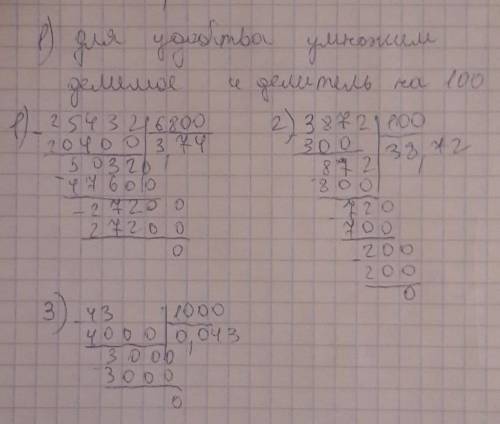 1) для удобства умножим
делимое и делитель на 100
1) - 25432 | 6800
20400 | 3,74
50320
- 47600
- 27200
27200
0
2) - 3872 | 100
300 | 38,72
872
- 800
720
- 700
- 200
200
0
3) - 43 | 1000
4000 | 0,043
3000
- 3000
0